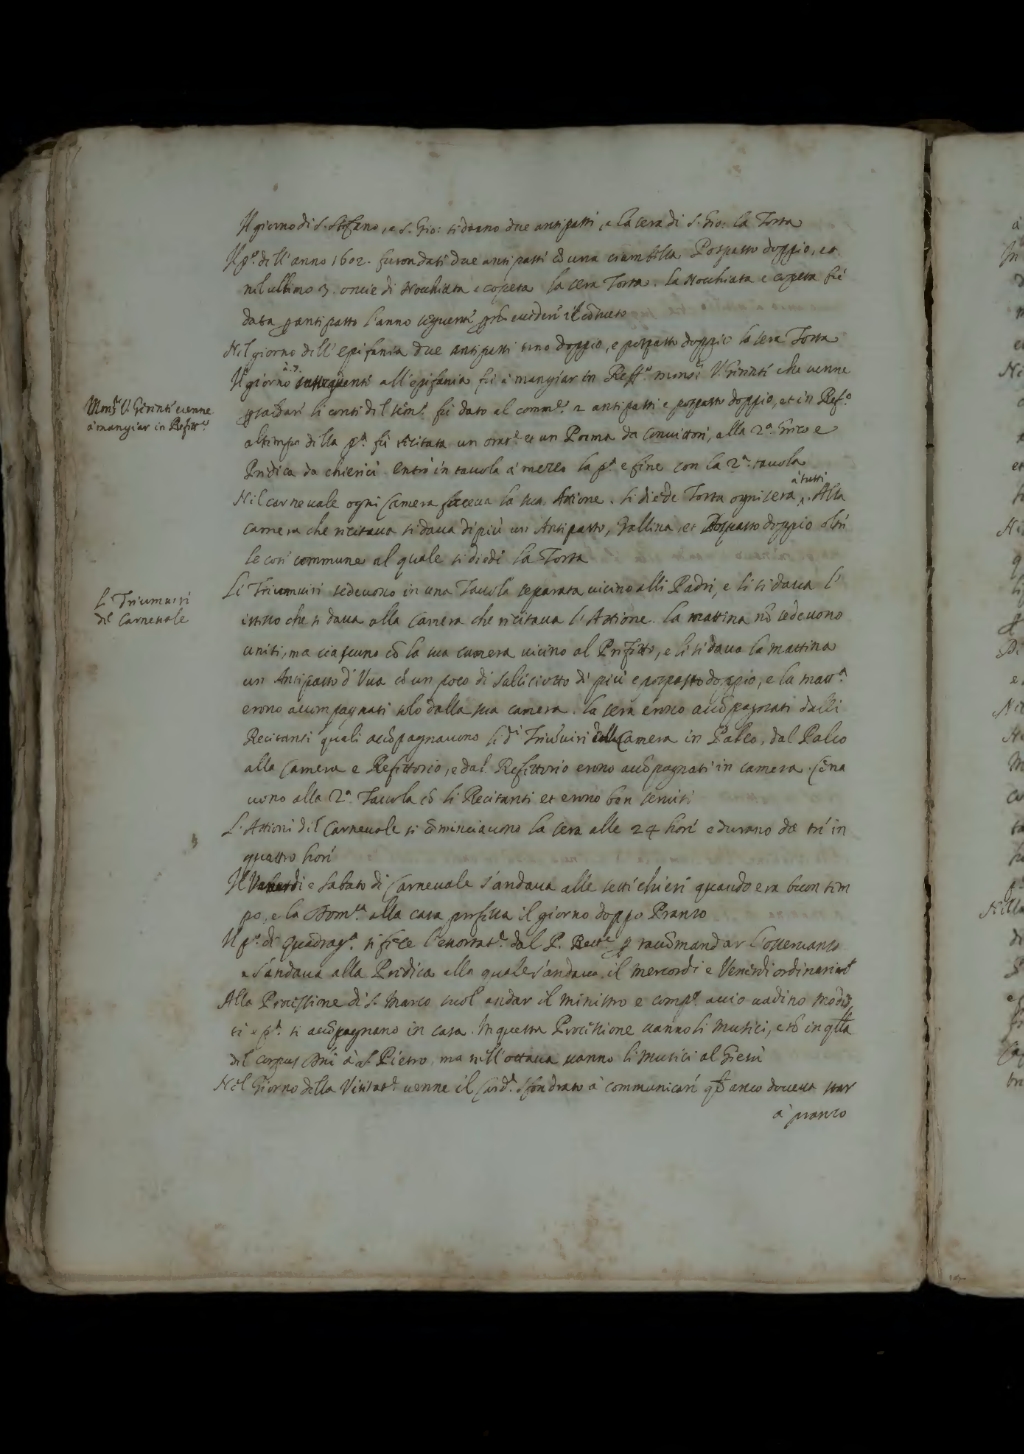 Il giorno di S. Stefano, e S. Gio: si diedero due antipasti, e la sera di S. Gio: la Torta
Il pº. dell'anno 1602. furono dati due antipasti cõ una ciambella Pospasto doppio, et
nel ultimo 3. oncie di Nocchiata e copeta la sera Torta. la Nocchiata e copeta fù
data antipasto l'anno seguente
Nel giorno dell'epifania due antipasti uno doppio, e pospasto doppio la sera Torta
Il giorno susseguente all'epifania, fù à mangiar in Reff.º monsr. che venne
Mons.r venne
à mangiar in Refitt.º
li conti del fù dato al comm.e 2 antipasti e pospasto doppio, et in Ref.º
al tempo della pª. fù recitata un orat.e et un Poema da Convittori, alla 2ª. Greco e
Predica da chierici. Entrò in tavola à mezzo la pª. e finè con la 2ª. tavola
Nel carnevale ogni Camera faceva la sua Attione. si diede Torta ogni sera à tutti. Alla
camera che recitava si dava di più un Antipasto, Gallina, et Pospasto doppio oltre
le cose commune al quale si diede la Torta
Li Triumviri
del Carnevale
Li Triumviri sedevono in una Tavola separata vicino alli Padri, e li si dava l'
istesso che si dava alla Camera che recitava l'Attione. la mattina nõ sedevono
uniti, ma ciascuno cõ la sua camera vicino al Prefetto, e li si dava la mattina
un Antipasto d'Uva cõ un poco di Salliciotto di più e pospasto doppio, e la matt.ª
erono accompagnati solo dalla sua camera. la sera erono accõpagnati dalli
Recitanti quali accõpagnavono li dº Triumviri dalla Camera in Palco, dal Palco
alla Camera e Refittorio, e dal Refittorio erono accõpagnati in camera. Cena
vono alla 2ª. Tavola cõ li Recitanti et erono ben serviti
L'Attioni del Carnevale si cõminciavono la sera alle 24 hore e durano da tre in
quattro hore
Il Venerdi e Sabato di Carnevale s'andava alle sette chiese quando era buon tem
po, e la Dom.ca alla casa professa il giorno doppo Pranzo
Il pº. di Quadrag.ª si fece l'essortat.e dal P. Rett.e raccõmandar l'osservanza
e s'andava alla Predica alla quale s'andava il mercordi e Venerdi ordinariam.te
Alla Processione di S. Marco suol andar il ministro e comp.º
si accõpagnano in casa. In questa Processione vanno li Musici, e cõ in qlla
del Corpus Dñi à S. Pietro, ma nell'ottava vanno li Musici al Giesù
Nel Giorno della Visitat.e venne il Card.l Sfondrato à communicare anco doveva star
à pranzo